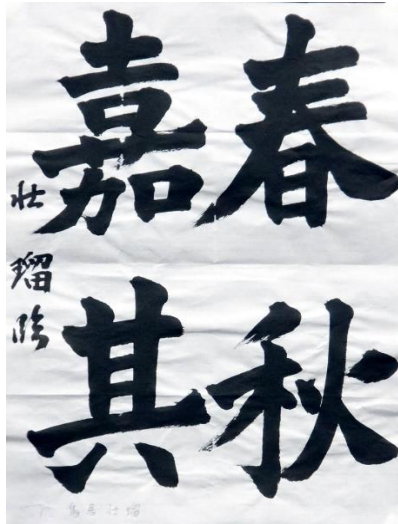 春秋
嘉其
壮瑠臨